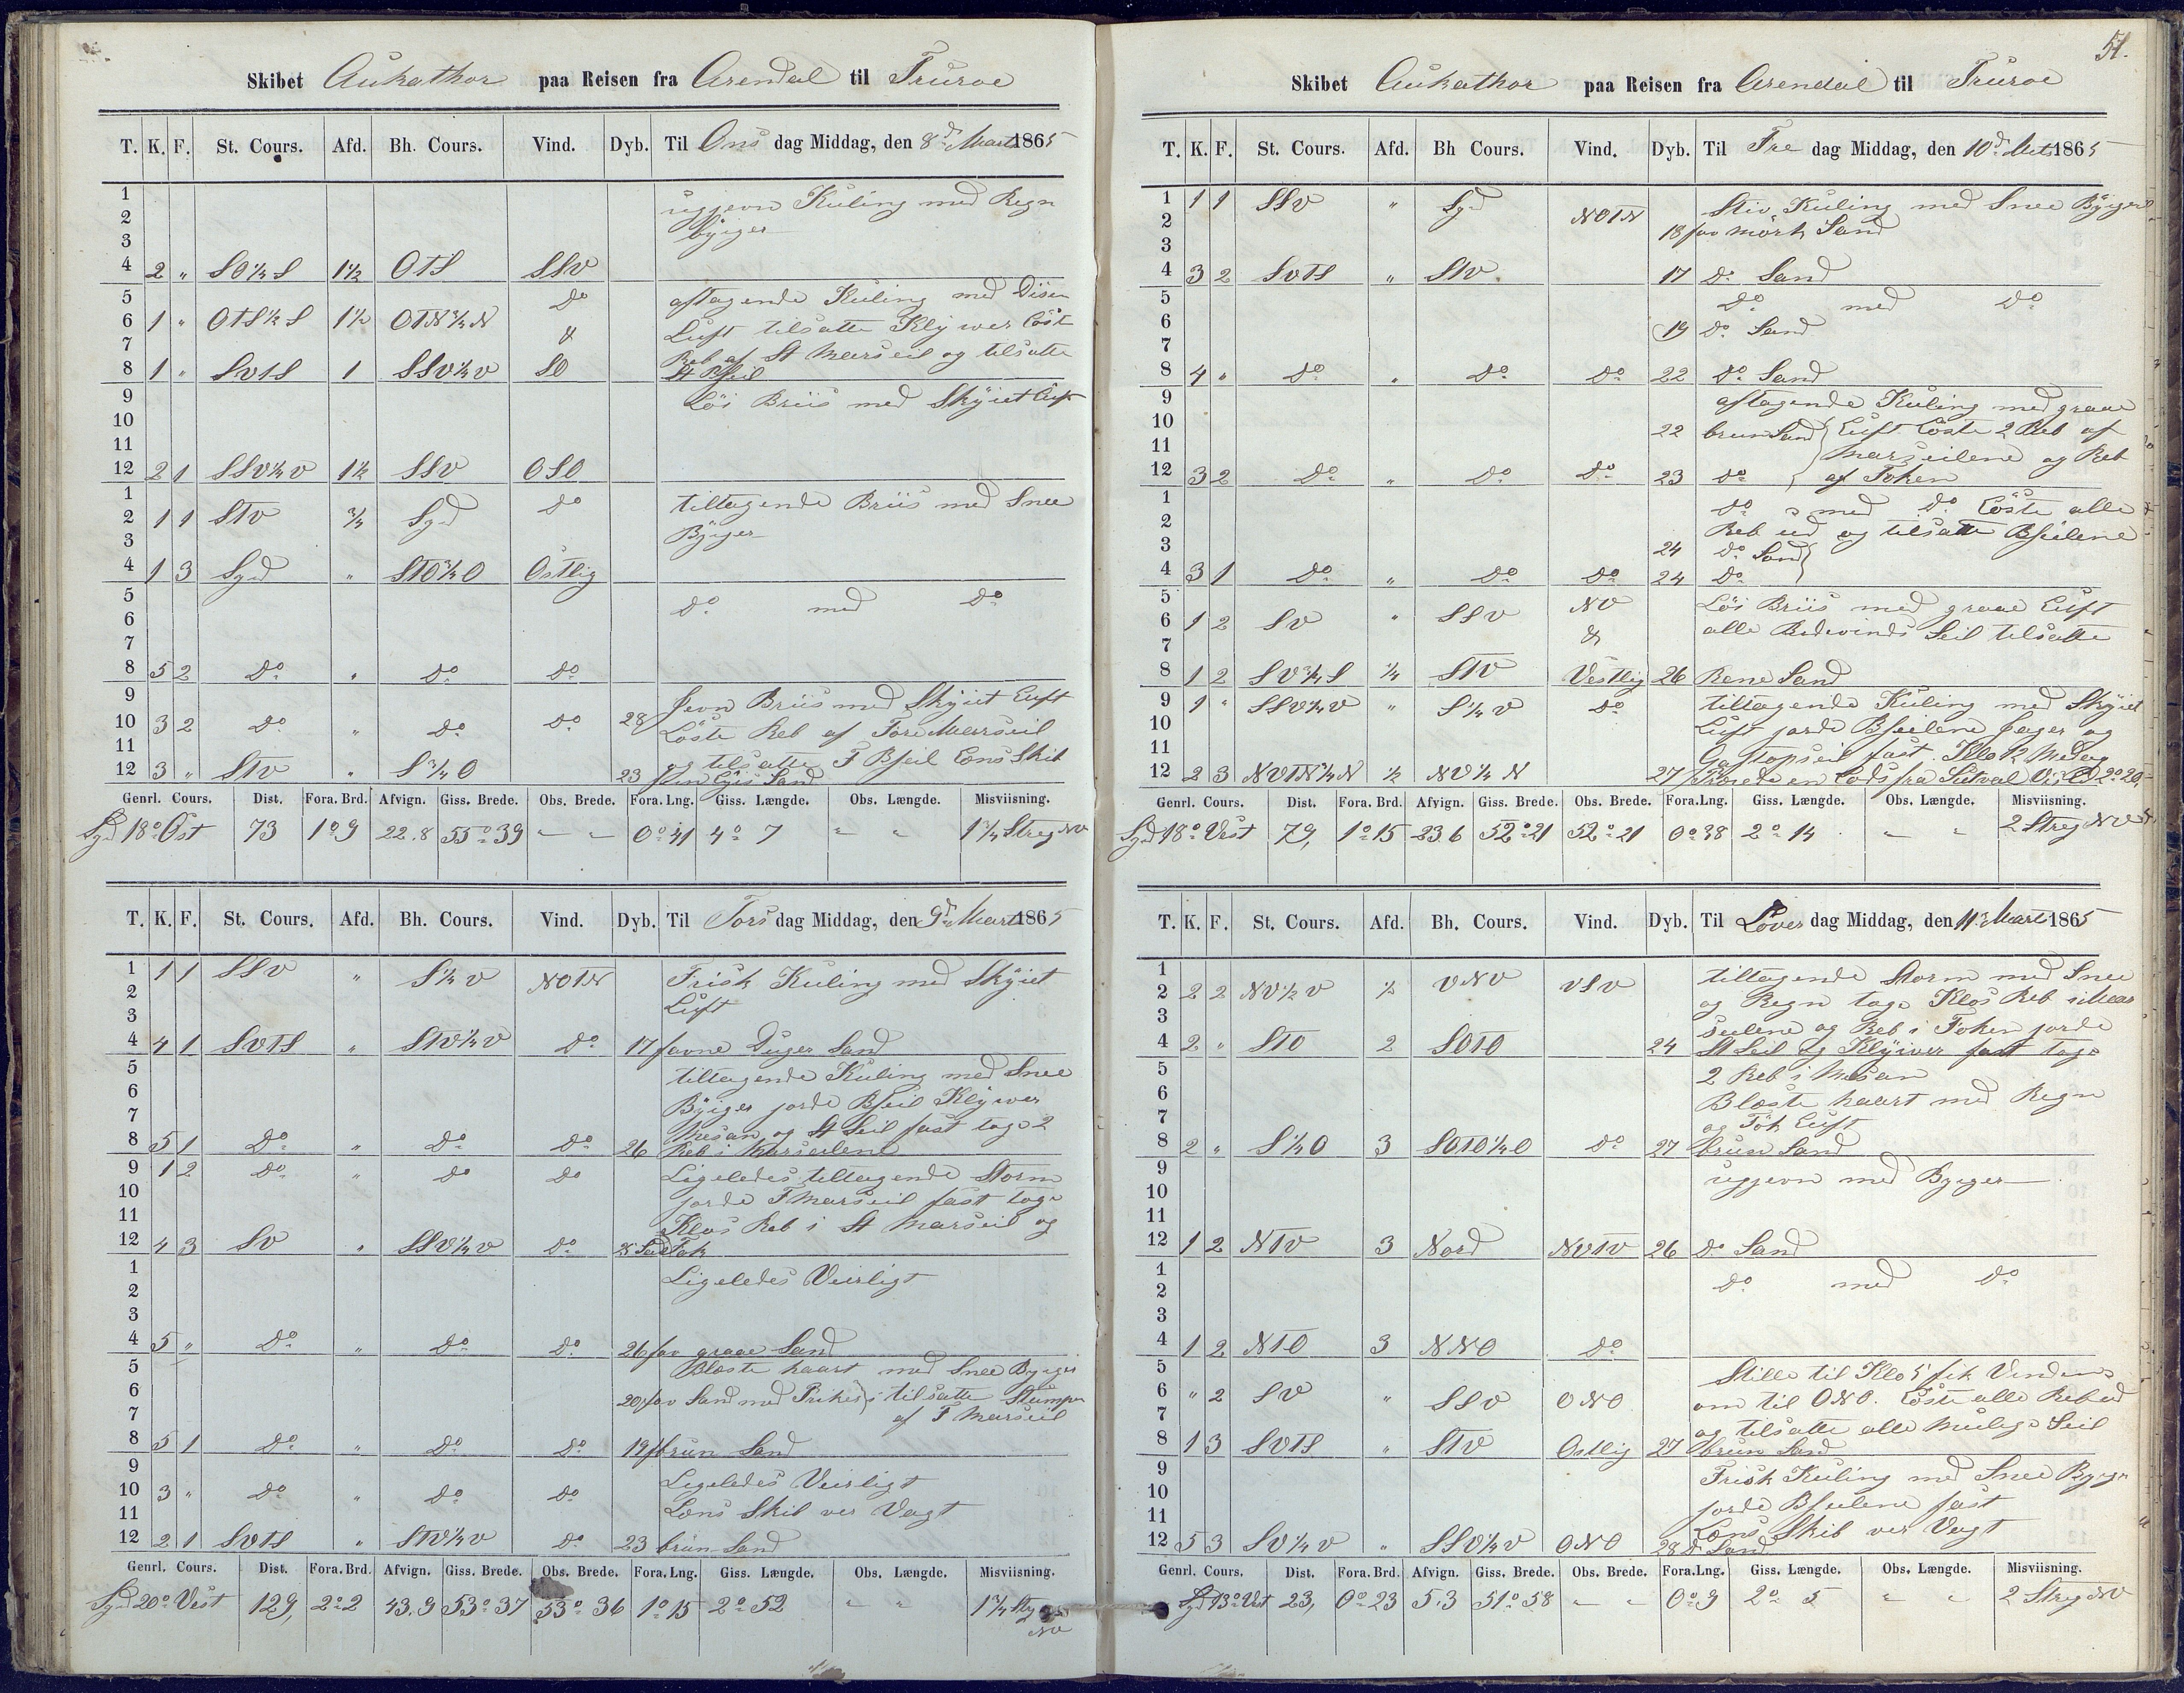 Skibet Aukathor paa Reisen fra Arendal til Truroe
T. K. F. St. Cours. Afd. Bh. Cours. Vind. Dyb. Til Ons dag Middag, den 8d Marts 1865
1 ugjevn Kuling med Regn
2 byiger
3
4 2 " SO¼S 1½ OTS SSV
5 Do aftagende Kuling med Disen
6 1 " OTS½S 1½ OTN¾N Luft tilsatte Klywer Löste
7 & Reb af St Marseil og tilsatte
8 1 " SVTS 1 SSV¼V SO St Bseil
9 Löi Briis med Skyiet Luft
10
11
12 2 1 SSV¼V 1½ SSV OSO
1 Do tiltagende Briis med Snee
2 1 1 STV ¾ Syd Byiger
3
4 1 3 Syd " STO¾O Ostlig
5 Do med Do
6
7
8 5 2 Do " Do Do
9 Jevn Briis med Skyiet Luft
10 3 2 Do " Do Do 28 Löste Reb af Fore Marseil
11 og tilsatte F Bseil Lens Skib
12 3 " STV " S¾O 23 fin Lys Sand
Genrl. Cours. Dist. Fora. Brd. Afvign. Giss. Brede. Obs. Brede. Fora. Lng. Giss. Længde. Obs. Længde. Misviisning.
Syd 18° Ost 73 1°9 22.8 55°39 " " 0°41 4° 7 " " 1¾ Streg NV
T. K. F. St. Cours. Afd. Bh. Cours. Vind. Dyb. Til Tors dag Middag, den 9d Marts 1865
1 1 1 SSV " S¼V NOTN Frisk Kuling med Skyiet
2 Luft
3
4 4 1 SVTS " STV¼V Do 17 favne Sand
5 tiltagende Kuling med Snee
6 Byiger jorde Bseil Klywer
7 Mesan og St Seil fast toge 2
8 5 1 Do " Do Do 26 Reb i Marseilene
9 1 2 Do " Do Do Ligeledes tiltagende Storm
10 jorde F Marseil fast toge
11 Klos Reb i St Marseil og
12 4 3 SV " SSV¼V Do 25 Sand Fok
1 Ligeledes Veirligt
2
3
4 5 " Do " Do Do 26 fav graae Sand
5 Blæste haart med Snee Byiger
6 20 fav Sand med Prikes tilsatte Stumpen
7 af F Marseil
8 5 1 Do " Do Do 19 f brun Sand
9 Ligeledes Veirligt
10 3 " Do " Do Do
11 Læns Skib ver Vagt
12 2 1 SVTS " STV¼V Do 23 brun Sand
Genrl. Cours. Dist. Fora. Brd. Afvign. Giss. Brede. Obs. Brede. Fora. Lng. Giss. Længde. Obs. Længde. Misviisning.
Syd 20° Vest 129, 2°2 43.9 53°37 53°36 1°15 2°52 " " 1¾ Streg
NV
51.
Skibet Aukathor paa Reisen fra Arendal til Truroe
T. K. F. St. Cours. Afd. Bh Cours. Vind. Dyb. Til Fre dag Middag, den 10d Mts 1865
1 1 1 SSV " Syd NOTN Stiv Kuling med Snee Byiger
2 18 fav mörk Sand
3
4 3 2 SVTS " STV 17 Do Sand
5 Do med Do
6 19 Do Sand
7
8 4 " Do " Do Do 22 Do Sand
9 aftagende Kuling med graae
10 22 brun Sand Luft Löste 2 Reb af
11 Marseilene og Reb
12 3 2 Do " Do Do 23 Do af Foken
1 Do med Do Löste alle
2 Reb ud og tilsatte Bseilene
3 24 Do Sand
4 3 1 Do " Do Do 24 Do
5 NV Löi Briis med graae Luft
6 1 2 SV " SSV alle Bidevinds Seil tilsatte
7 &
8 1 2 SV¾S ¼ STV Vestlig 26 Rene Sand
9 1 " SSV¼V " S¼V Do tiltagende Kuling med Skyiet
10 Luft jorde Bseilene fager og
11 Gaftopseil fast. Klo 12 Middag
12 2 3 NVTN¼N ½ NV¼N 27 en Lods fra
Genrl. Cours. Dist. Fora. Brd. Afvign. Giss. Brede. Obs. Brede. Fora. Lng. Giss. Længde. Obs. Længde. Misviisning.
Syd 18° Vest 79, 1°15 23.6 52°21 52°21 0°38 2°14 " " 2 Streg NV
T. K. F. St. Cours. Afd. Bh. Cours. Vind. Dyb. Til Löver dag Middag, den 11d Marts 1865
1 tiltagende Storm med Snee
2 2 2 NV½V ½ VNV VSV og Regn toge Klos Reb i Mar
3 seilene og Reb i Foken jorde
4 2 " STO 2 SOTO 24 St Seil og Klyiver fast toge
5 2 Reb i Mesan
6 Blæste haart med Regn
7 og Tök Luft
8 2 " S¼O 3 SOTO¼O Do 27 brun Sand
9 ugjevn med Byiger
10
11
12 1 2 NTV 3 Nord NVTV 26 Do Sand
1 Do med Do
2
3
4 1 2 NTO 3 NNO Do
5 Stille til Klo 5 fik Vinden
6 " 2 SV " SSV ONO om til ONO. Löste alle Reb ud
7 og tilsatte alle mulige Seil
8 1 3 SVTS " STV Ostlig 27 brun Sand
9 Frisk Kuling med Snee Byiger
10 jorde Bseilene fast
11 Læns Skib ver Vagt
12 5 3 SV¼V " SSV¼V ONO 28 Do Sand
Genrl. Cours. Dist. Fora. Brd. Afvign. Giss. Brede. Obs. Brede. Fora. Lng. Giss. Længde. Obs. Længde. Misviisning.
Syd 13° Vest 23, 0°23 5.3 51°58 " " 0°9 2° 5 " " 2 Streg NV